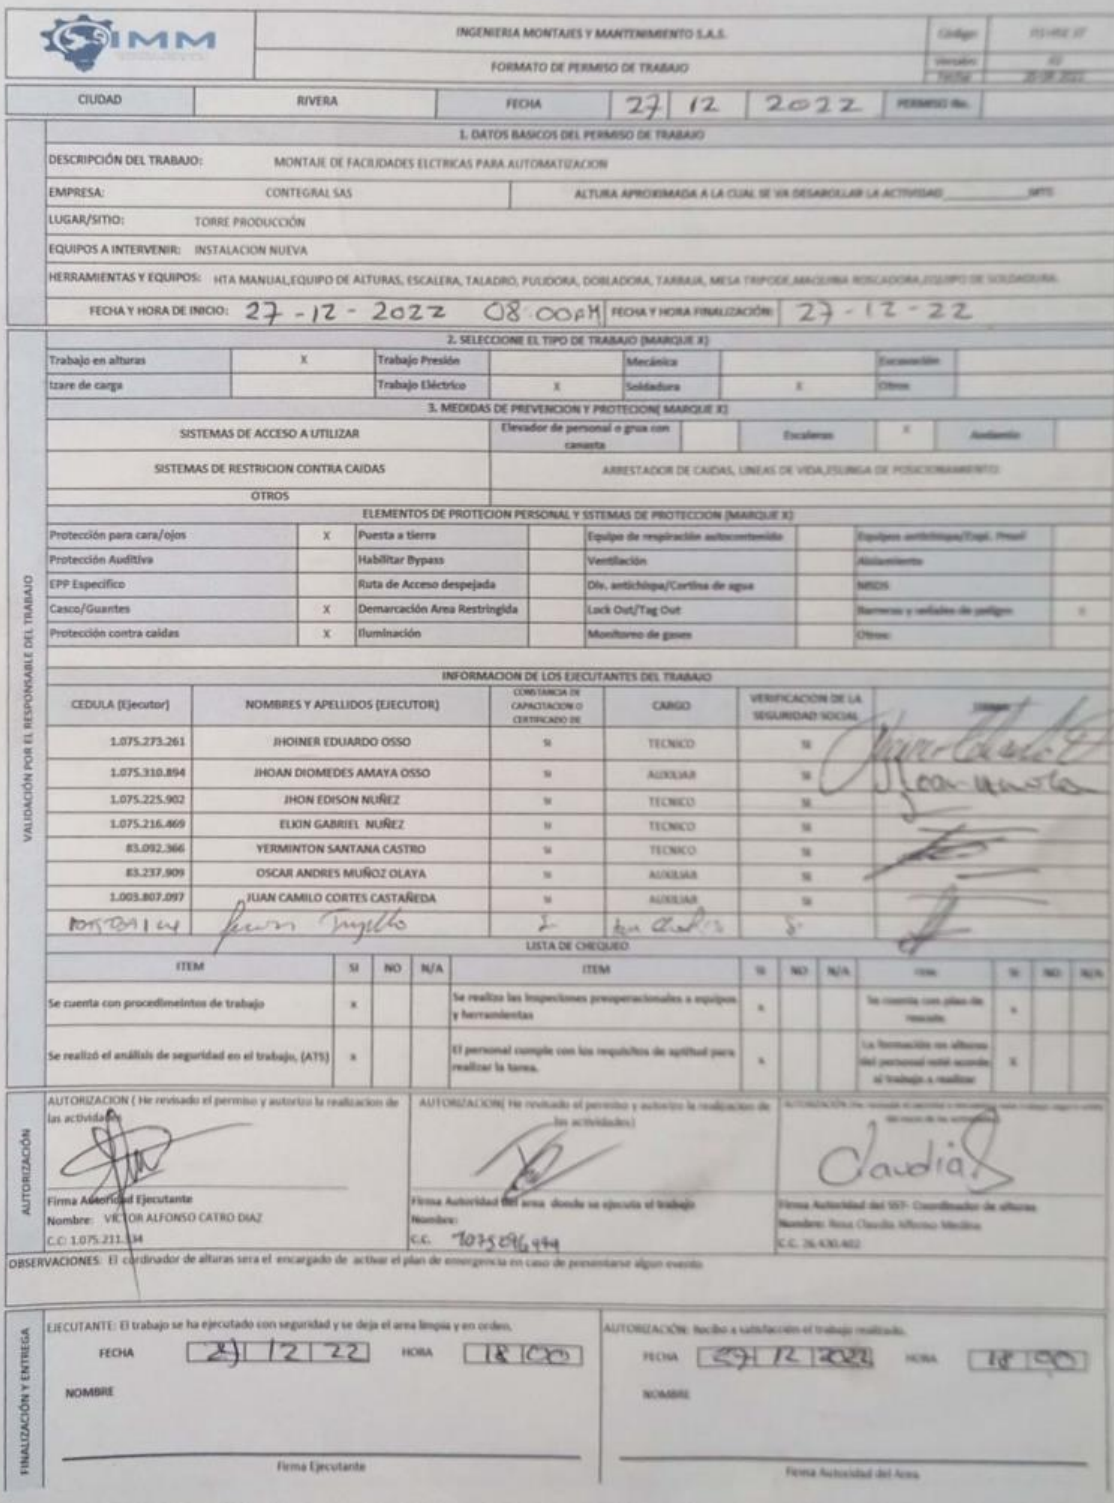 SIMM
INGENIERIA MONTAJES Y MANTENIMIENTO S.A.S.
Código:
FORMATO DE PERMISO DE TRABAJO
Versión:
Fecha:
CIUDAD RIVERA FECHA 27 12 2022 PERMISO No.
1. DATOS BASICOS DEL PERMISO DE TRABAJO
DESCRIPCIÓN DEL TRABAJO: MONTAJE DE FACILIDADES ELCTRICAS PARA AUTOMATIZACION
EMPRESA: CONTEGRAL SAS ALTURA APROXIMADA A LA CUAL SE VA DESAROLLAR LA ACTIVIDAD MTS
LUGAR/SITIO: TORRE PRODUCCIÓN
EQUIPOS A INTERVENIR: INSTALACION NUEVA
HERRAMIENTAS Y EQUIPOS: HTA MANUAL,EQUIPO DE ALTURAS, ESCALERA, TALADRO, PULIDORA, DOBLADORA, TARRAJA, MESA TRIPODE,MAQUINA ROSCADORA,EQUIPO DE SOLDADURA.
FECHA Y HORA DE INICIO: 27-12-2022 08:00AM FECHA Y HORA FINALIZACIÓN: 27-12-22
2. SELECCIONE EL TIPO DE TRABAJO (MARQUE X)
Trabajo en alturas X Trabajo Presión Mecánica Excavación
Izare de carga Trabajo Eléctrico X Soldadura X Otros
3. MEDIDAS DE PREVENCION Y PROTECION( MARQUE X)
SISTEMAS DE ACCESO A UTILIZAR Elevador de personal o grua con canasta Escaleras X Andamio
SISTEMAS DE RESTRICION CONTRA CAIDAS ARRESTADOR DE CAIDAS, LINEAS DE VIDA,ESLINGA DE POSICIONAMIENTO
OTROS
ELEMENTOS DE PROTECION PERSONAL Y SSTEMAS DE PROTECCION (MARQUE X)
Protección para cara/ojos X Puesta a tierra Equipo de respiración autocontenido Equipos antichispa/Expl. Proof
Protección Auditiva Habilitar Bypass Ventilación Aislamiento
EPP Especifico Ruta de Acceso despejada Div. antichispa/Cortina de agua MSDS
Casco/Guantes X Demarcación Area Restringida Lock Out/Tag Out Barreras y señales de peligro X
Protección contra caidas X Iluminación Monitoreo de gases Otros:
VALIDACIÓN POR EL RESPONSABLE DEL TRABAJO
INFORMACION DE LOS EJECUTANTES DEL TRABAJO
CEDULA (Ejecutor) NOMBRES Y APELLIDOS (EJECUTOR) CONSTANCIA DE CAPACITACION O CERTIFICADO DE CARGO VERIFICACIÓN DE LA SEGURIDAD SOCIAL
1.075.273.261 JHOINER EDUARDO OSSO SI TECNICO SI
1.075.310.894 JHOAN DIOMEDES AMAYA OSSO SI AUXILIAR SI
1.075.225.902 JHON EDISON NUÑEZ SI TECNICO SI
1.075.216.469 ELKIN GABRIEL NUÑEZ SI TECNICO SI
83.092.366 YERMINTON SANTANA CASTRO SI TECNICO SI
83.237.909 OSCAR ANDRES MUÑOZ OLAYA SI AUXILIAR SI
1.003.807.097 JUAN CAMILO CORTES CASTAÑEDA SI AUXILIAR SI
Trujillo
LISTA DE CHEQUEO
ITEM SI NO N/A ITEM SI NO N/A ITEM SI NO N/A
Se cuenta con procedimeintos de trabajo x Se realizo las inspeciones preoperacionales a equipos y herramientas x Se cuenta con plan de rescate x
Se realizó el análisis de seguridad en el trabajo, (ATS) x El personal cumple con los requisitos de aptitud para realizar la tarea. x La formación en alturas del personal esté acorde al trabajo a realizar X
AUTORIZACIÓN
AUTORIZACION ( He revisado el permiso y autorizo la realizacion de las actividades
AUTORIZACION( He revisado el permiso y autorizo la realizacion de las actividades)
Claudia
Firma Autoridad Ejecutante
Firma Autoridad del area donde se ejecuta el trabajo
Firma Autoridad del SST- Coordinador de alturas
Nombre: VICTOR ALFONSO CATRO DIAZ
Nombre:
Nombre: Rosa Claudia Alfonso Medina
C.C: 1.075.211.
C.C.
C.C. 26.430.402
OBSERVACIONES: El cordinador de alturas sera el encargado de activar el plan de emergencia en caso de presentarse algun evento
FINALIZACIÓN Y ENTREGA
EJECUTANTE: El trabajo se ha ejecutado con seguridad y se deja el area limpia y en orden.
AUTORIZACIÓN: Recibo a satisfacción el trabajo realizado.
FECHA 27 12 22 HORA 18 00
FECHA 27 12 2022 HORA 18 00
NOMBRE
NOMBRE
Firma Ejecutante
Firma Autoridad del Area